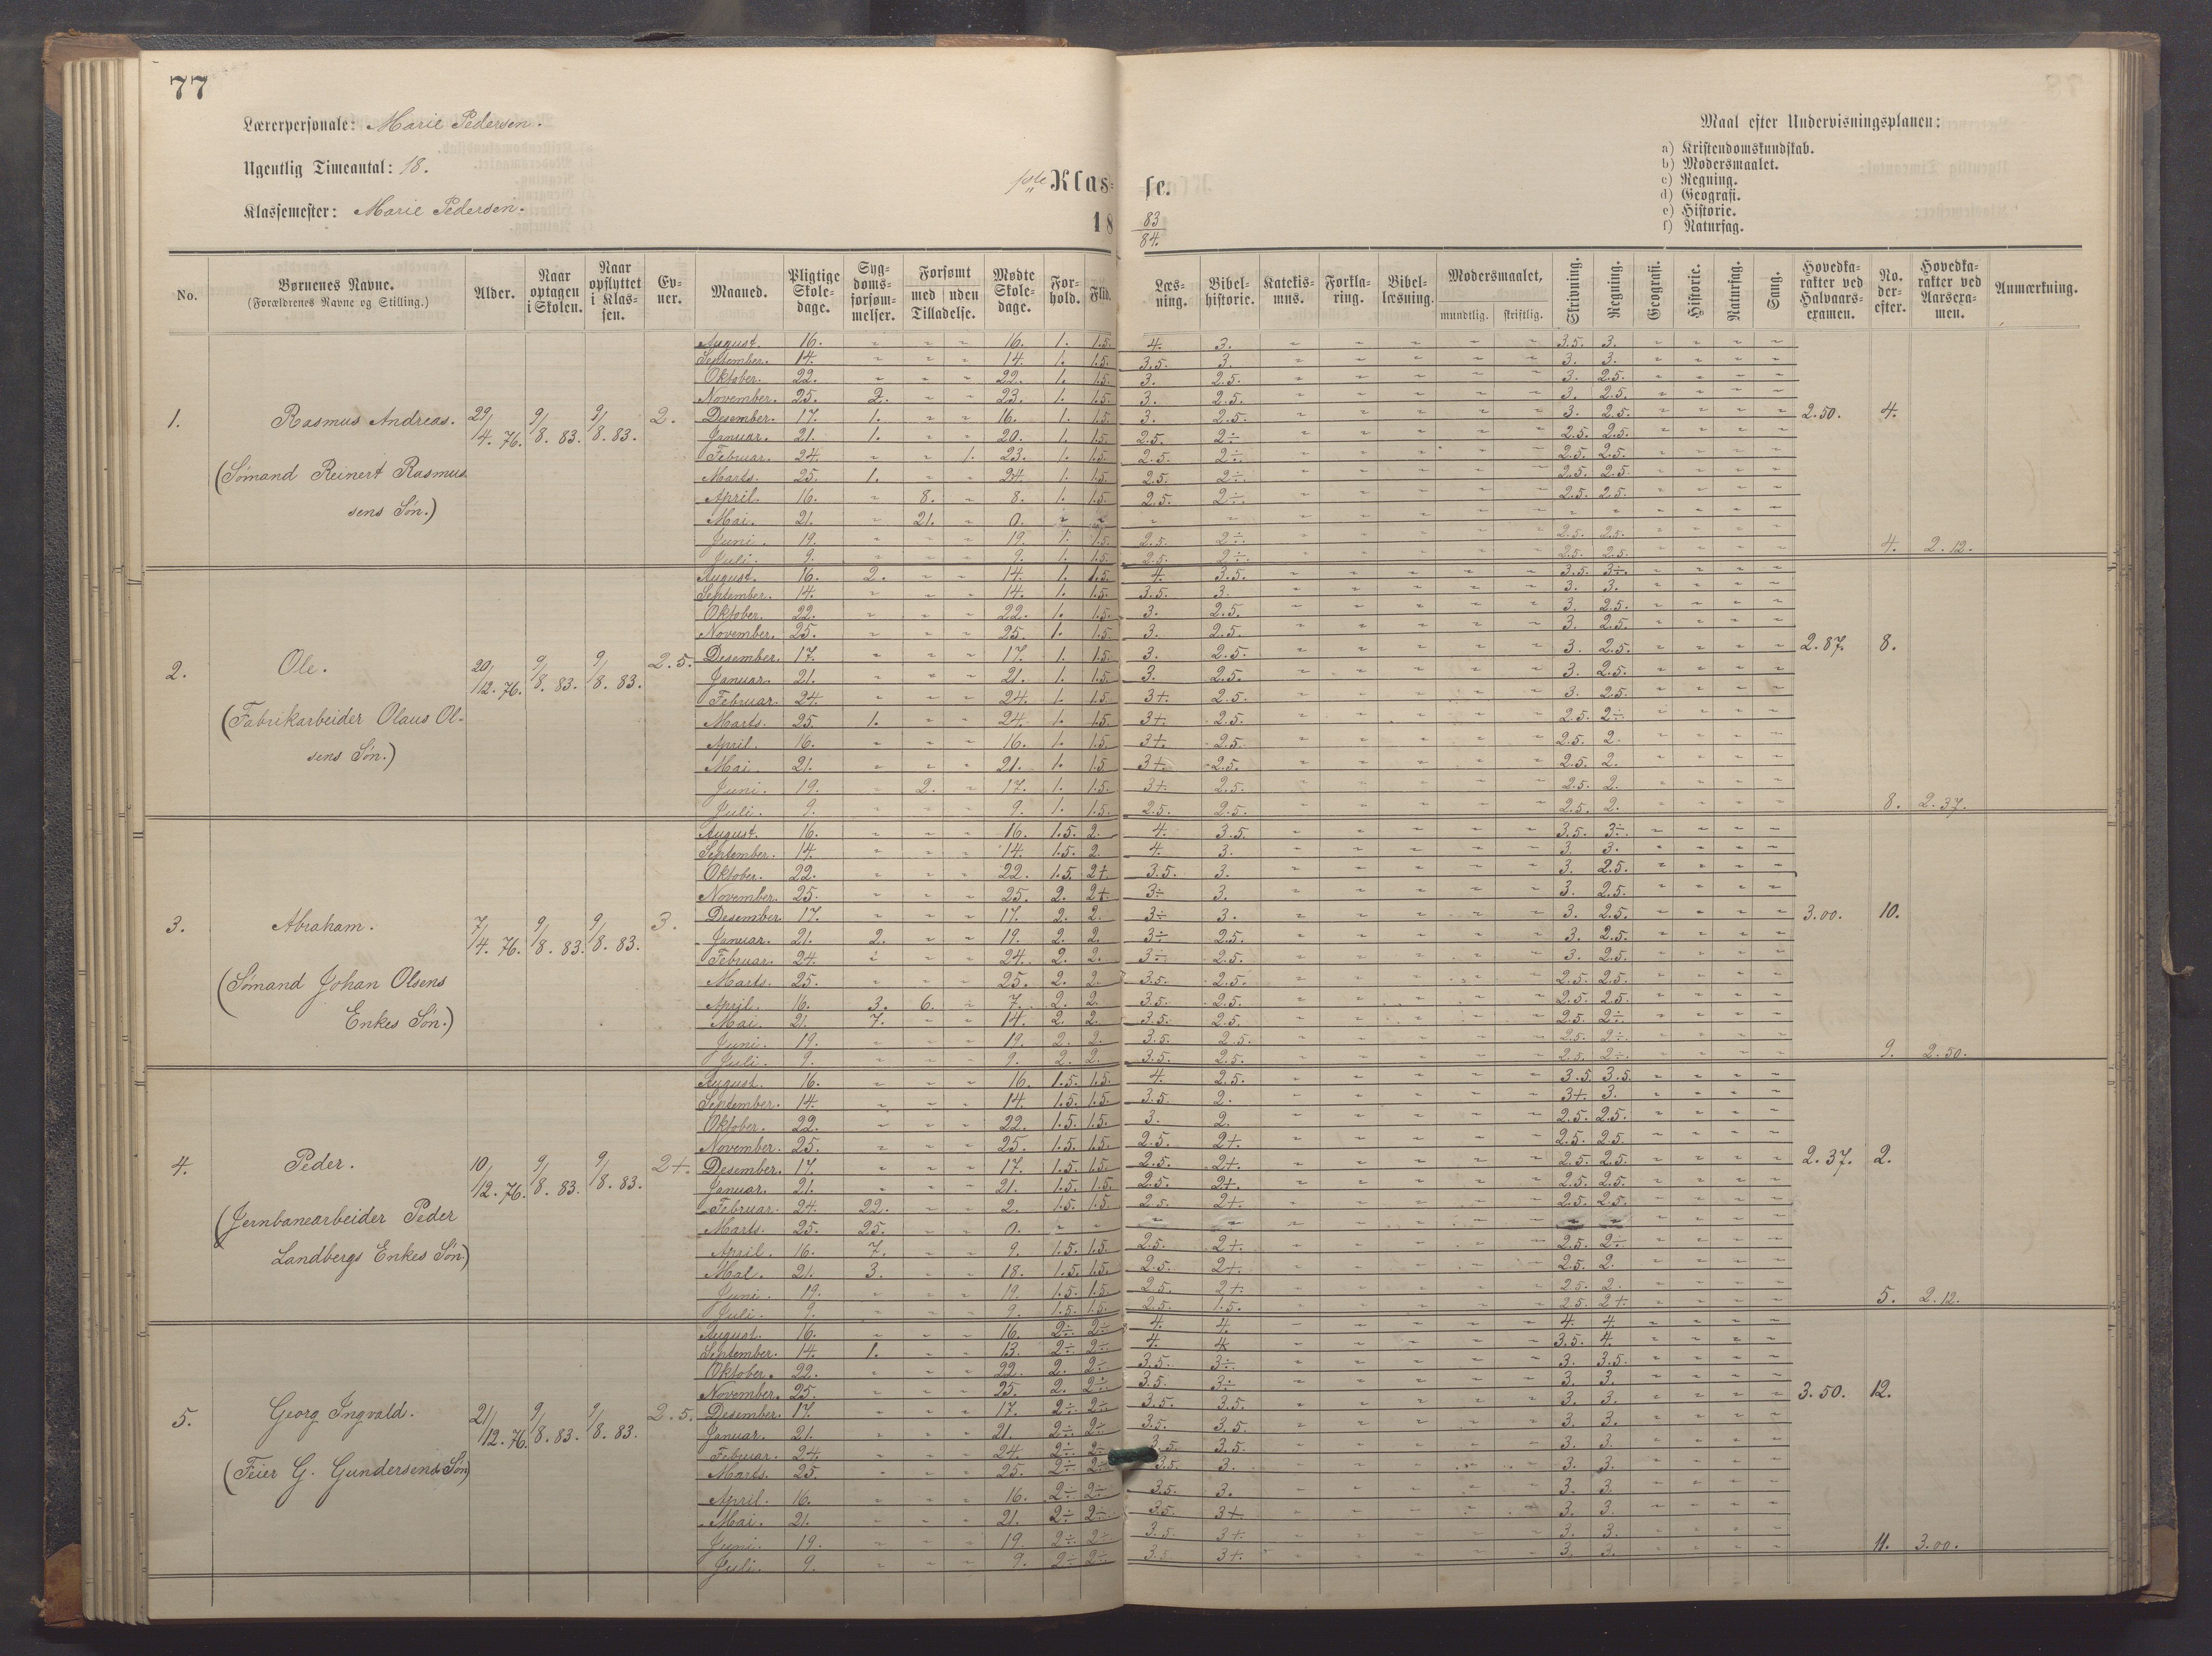 77
Lærerpersonale: Marie Pedersen.
Ugentlig Timeantal: 18.
Klassemester: Marie Pedersen.
1ste Klasse.
18 83/84.
Maal efter Undervisningsplanen:
a) Kristendomskundskab.
b) Modersmaalet.
c) Regning.
d) Geografi.
e) Historie.
f) Naturfag.
No. | Børnenes Navne. (Forældrenes Navne og Stilling.) | Alder. | Naar optagen i Skolen. | Naar opflyttet i Klassen. | Evner. | Maaned. | Pligtige Skoledage. | Sygdomsforsømmelser. | Forsømt med Tilladelse. | uden Tilladelse. | Mødte Skoledage. | Forhold. | Flid. | Læsning. | Bibelhistorie. | Katekismus. | Forklaring. | Bibellæsning. | Modersmaalet, mundtlig. | skriftlig. | Skrivning. | Regning. | Geografi. | Historie. | Naturfag. | Sang. | Hovedkarakter ved Halvaarsexamen. | No. derefter. | Hovedkarakter ved Aarsexamen. | Anmærkning.
1. Rasmus Andreas. 29/4. 76. 9/8. 83. 9/8. 83. 2. 2.50. 4.
(Sømand Reinert Rasmus
sens Søn.)
August. 16. - - - 16. 1. 1.5. 4. 3. - - - - - 3.5. 3. - - - -
September. 14. - - - 14. 1. 1.5. 3.5. 3. - - - - - 3. 3. - - - -
Oktober. 22. - - - 22. 1. 1.5. 3. 2.5. - - - - - 3. 2.5. - - - -
November. 25. 2. - - 23. 1. 1.5. 3. 2.5. - - - - - 3. 2.5. - - - -
Desember. 17. 1. - - 16. 1. 1.5. 3. 2.5. - - - - - 3. 2.5. - - - -
Januar. 21. 1. - - 20. 1. 1.5. 2.5. 2÷ - - - - - 2.5. 2.5. - - - -
Februar. 24. - - 1. 23. 1. 1.5. 2.5. 2÷. - - - - - 2.5. 2.5. - - - -
Marts. 25. 1. - - 24. 1. 1.5. 2.5. 2÷. - - - - - 2.5. 2.5. - - - -
April. 16. - 8. - 8. 1. 1.5. 2.5. 2÷. - - - - - 2.5. 2.5. - - - -
Mai. 21. - 21. - 0. - - - - - - - - - - - - - - -
Juni. 19. - - - 19. 1. 1.5. 2.5. 2÷. - - - - - 2.5. 2.5. - - - -
Juli. 9. - - - 9. 1. 1.5. 2.5. 2÷. - - - - - 2.5. 2.5. - - - - 4. 2.12.
2. Ole. 20/12. 76. 9/8. 83. 9/8. 83. 2.5. 2.87. 8.
(Fabrikarbeider Olaus Ol-
sens Søn.)
August. 16. 2. - - 14. 1. 1.5. 4. 3.5. - - - - - 3.5. 3÷. - - - -
September. 14. - - - 14. 1. 1.5. 3.5. 3. - - - - - 3. 3. - - - -
Oktober. 22. - - - 22. 1. 1.5. 3. 2.5. - - - - - 3. 2.5. - - - -
November. 25. - - - 25. 1. 1.5. 3. 2.5. - - - - - 3. 2.5. - - - -
Desember. 17. - - - 17. 1. 1.5. 3. 2.5. - - - - - 3. 2.5. - - - -
Januar. 21. - - - 21. 1. 1.5. 3. 2.5. - - - - - 3. 2.5. - - - -
Februar. 24. - - - 24. 1. 1.5. 3+. 2.5. - - - - - 3. 2.5. - - - -
Marts. 25. 1. - - 24. 1. 1.5. 3+. 2.5. - - - - - 2.5. 2÷. - - - -
April. 16. - - - 16. 1. 1.5. 3+. 2.5. - - - - - 2.5. 2. - - - -
Mai. 21. - - - 21. 1. 1.5 3+. 2.5. - - - - - 2.5. 2. - - - -
Juni. 19. - 2. - 17. 1. 1.5. 3+ 2.5. - - - - - 2.5. 2. - - - -
Juli. 9. - - - 9. 1. 1.5. 2.5. 2.5. - - - - - 2.5. 2. - - - - 8. 2.37.
3. Abraham. 7/4. 76. 9/8. 83. 9/8. 83. 3. 3.00. 10.
(Sømand Johan Olsens
Enkes Søn.)
August. 16. - - - 16. 1.5. 2. 4. 3.5. - - - - - 3.5. 3÷. - - - -
September. 14. - - - 14. 1.5. 2. 4. 3. - - - - - 3. 3. - - - -
Oktober. 22. - - - 22. 1.5. 2+. 3.5. 3. - - - - - 3. 2.5. - - - -
November. 25. - - - 25. 2. 2+. 3÷ 3. - - - - - 3. 2.5. - - - -
Desember 17. - - - 17. 2. 2. 3÷ 3. - - - - - 3. 2.5. - - - -
Januar. 21. 2. - - 19. 2. 2. 3÷ 2.5. - - - - - 3. 2.5. - - - -
Februar. 24. - - - 24. 2. 2. 3÷. 2.5. - - - - - 3. 2.5. - - - -
Marts. 25. - - - 25. 2. 2. 3.5. 2.5. - - - - - 2.5. 2.5. - - - -
April. 16. 3. 6. - 7. 2. 2. 3.5. 2.5. - - - - - 2.5. 2.5. - - - -
Mai. 21. 7. - - 14. 2. 2. 3.5. 2.5. - - - - - 2.5. 2÷. - - - -
Juni. 19. - - - 19. 2. 2. 3.5. 2.5. - - - - - 2.5. 2÷. - - - -
Juli. 9. - - - 9. 2. 2. 3.5. 2.5. - - - - - 2.5. 2÷. - - - - 9. 2.50.
4. Peder. 10/12. 76. 9/8. 83. 9/8. 83. 2+. 2.37. 2.
(Jernbanearbeider Peder
Landbergs Enkes Søn)
August. 16. - - - 16. 1.5. 1.5. 4. 2.5. - - - - - 3.5. 3.5. - - - -
September. 14. - - - 14. 1.5. 1.5. 3.5. 2. - - - - - 3+. 3. - - - -
Oktober. 22. - - - 22. 1.5. 1.5. 3. 2. - - - - - 2.5. 2.5. - - - -
November. 25. - - - 25. 1.5. 1.5. 2.5. 2+. - - - - - 2.5. 2.5. - - - -
Desember. 17. - - - 17. 1.5. 1.5. 2.5. 2+. - - - - - 2.5. 2.5. - - - -
Januar. 21. - - - 21. 1.5. 1.5. 2.5. 2+. - - - - - 2.5. 2.5. - - - -
Februar. 24. 22. - - 2. 1.5. 1.5 2.5. 2+. - - - - - 2.5. 2.5. - - - -
Marts. 25. 25. - - 0. - - - - - - - - - - - - - - -
April. 16. 7. - - 9. 1.5. 1.5. 2.5. 2+. - - - - - 2.5. 2÷ - - - -
Mai. 21. 3. - - 18. 1.5. 1.5. 2.5. 2+. - - - - - 2.5. 2. - - - -
Juni. 19. - - - 19. 1.5. 1.5. 2.5. 2+. - - - - - 2.5. 2. - - - -
Juli. 9. - - - 9. 1.5. 1.5. 2.5. 1.5. - - - - - 2.5. 2+. - - - - 5. 2.12.
5. Georg Ingvald. 21/12. 76. 9/8. 83. 9/8. 83. 2.5. 3.50. 12.
(Feier G. Gundersens Søn)
August. 16. - - - 16. 2÷. 2÷ 4. 4. - - - - - 4. 4. - - - -
September. 14. 1. - - 13. 2÷. 2÷ 4. 4. - - - - - 3.5. 4. - - - -
Oktober. 22. - - - 22. 2. 2÷. 3.5. 3÷. - - - - - 3. 3.5. - - - -
November. 25. - - - 25. 2. 2÷. 3.5. 3÷ - - - - - 3. 3. - - - -
Desember. 17. - - - 17. 2÷ 2÷ 3.5. 3.5. - - - - - 3. 3. - - - -
Januar. 21. - - - 21. 2÷ 2÷ 3.5. 3.5. - - - - - 3. 3. - - - -
Februar. 24. - - - 24. 2÷. 2÷ 3.5. 3.5. - - - - - 3. 3. - - - -
Marts. 25. - - - 25. 2÷ 2÷ 3.5. 3. - - - - - 3. 3. - - - -
April. 16. - - - 16. 2÷ 2÷ 3.5. 3. - - - - - 3. 3. - - - -
Mai. 21. - - - 21. 2÷ 2÷ 3.5. 3+ - - - - - 3. 3. - - - -
Juni. 19. - - - 19. 2÷ 2÷ 3.5. 3+. - - - - - 3. 3. - - - -
Juli. 9. - - - 9. 2÷ 2÷. 3.5. 3+. - - - - - 3. 3. - - - - 11. 3.00.